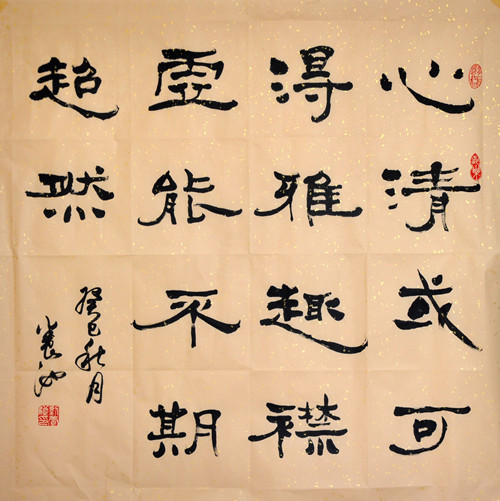 心清或可
得雅趣襟
虚能不期
超然
癸巳秋月